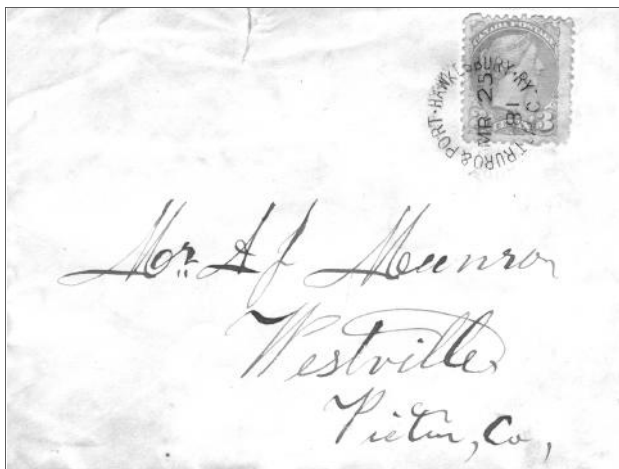 TRURO & PORT·HAWKESBURY·RY·
MR 25
81
3
Mr. A J Munro
Westville
Pictou, Co,